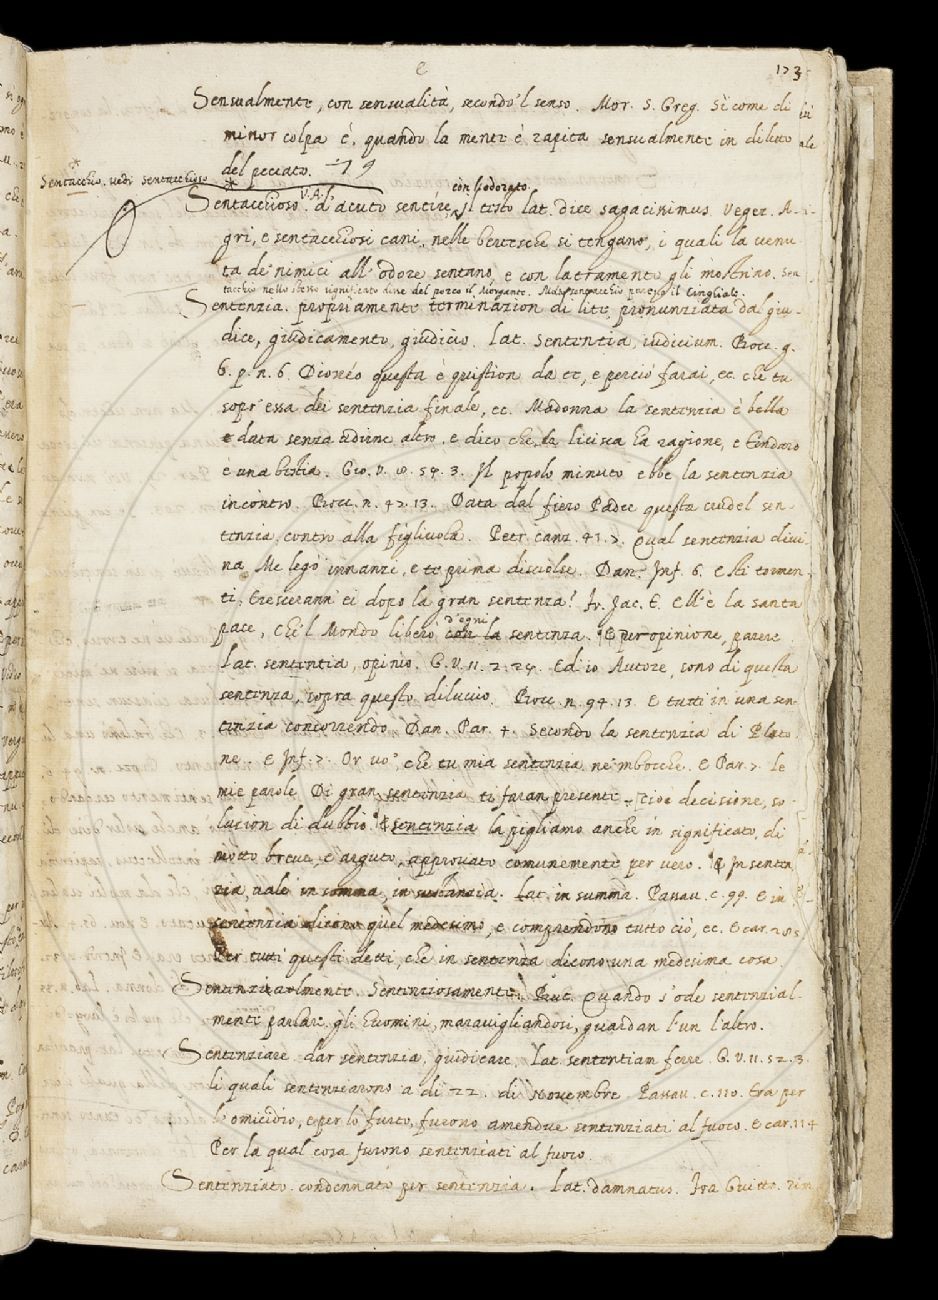 e
123
Sensualmente, con sensualità, secondo'l senso. Mor. S. Greg. Sì come di
minor colpa è, quando la mente è rapita sensualmente in diletto
del peccato. 19
Sentacchio. vedi sentacchioso
con l'odorato.
Sentacchioso V.A. d'acuto sentire, Il testo lat. dice sagacissimus. Veget. A-
gri, e sentacchiosi cani, nelle bertesche si tengano, i quali la venu
ta de' nimici all'odore sentano, e con lactramento gli mostrino. Sen
tacchio nello stesso significato disse del porco il Morgante. porco il Cinghiale
Sentenzia. propriamente terminazion di lite, pronunziata dal giu-
dice, giudicamento, giudicio. Lat. Sententia, iudicium. Bocc. g.
6. p. n. 6. Dioneo questa è quistion da te, e perciò farai, ec. che tu
sopr'essa dei sentenzia finale, ec. Madonna la sentenzia è bella
e data senza udirne altro. e dico che, la licisca ha ragione, e Tindaro
è una bestia. Gio. V. 8. 54. 3. Il popolo minuto ebbe la sentenzia
incontro. Bocc. n. 42. 13. Data dal fiero Padre questa crudel sen-
tenzia, contro alla figliuola. Petr. canz. 41. 7. Qual sentenzia divi-
na Me legò innanzi, e te prima disciolse. Dan. Inf. 6. e sti tormen-
ti, Crescerann'ei dopo la gran sentenza? Fr. Jac. T. Ell'è la santa
d'ogni
pace, Che'l Mondo liberò con la sentenza. ¶ E per opinione, parere
Lat. sententia, opinio. G.V. 11. 2. 24. Ed io Autore, sono di questa
sentenza, sopra questo diluvio. Bocc. n. 94. 13. E tutti in una sen-
tenzia concorrendo. Dan. Par. 4. Secondo la sentenzia di Plato
ne. E Inf. 7. Or vo', che tu mia sentenzia ne 'mbocche. E Par. 7. Le
mie parole Di gran sentenzia ti faran presente. cioè decisione, so-
luzion di dubbio. ¶ E sentenzia la pigliamo anche in significato, di
motto breve, e arguto, approvato comunemente per vero. ¶ In senten
zia, vale in somma, in sustanzia. Lat. in summa. Passau. c. 99. E in
sentenzia dicono quel medesimo, e comprendono tutto ciò, ec. E car. 285
Per tutti questi detti, che in sentenzia dicono una medesima cosa.
Sentenzialmente. Sentenziosamente. Quando s'ode sentenzial-
mente parlare gli huomini, maravigliandosi, guardan l'un l'altro.
Sentenziare. dar sentenzia, giudicare. Lat. sententiam ferre. G. V. 11. 52. 3
li quali sentenziarono a di 22. di Novembre Passau. c. 110. Era per
l'omicidio, e per lo furto, furono amendue sentenziati al fuoco. E car. 114
Per la qual cosa furono sentenziati al fuoco.
Sentenziato. condennato per sentenzia. Lat. damnatus. Fra Guitt. rim